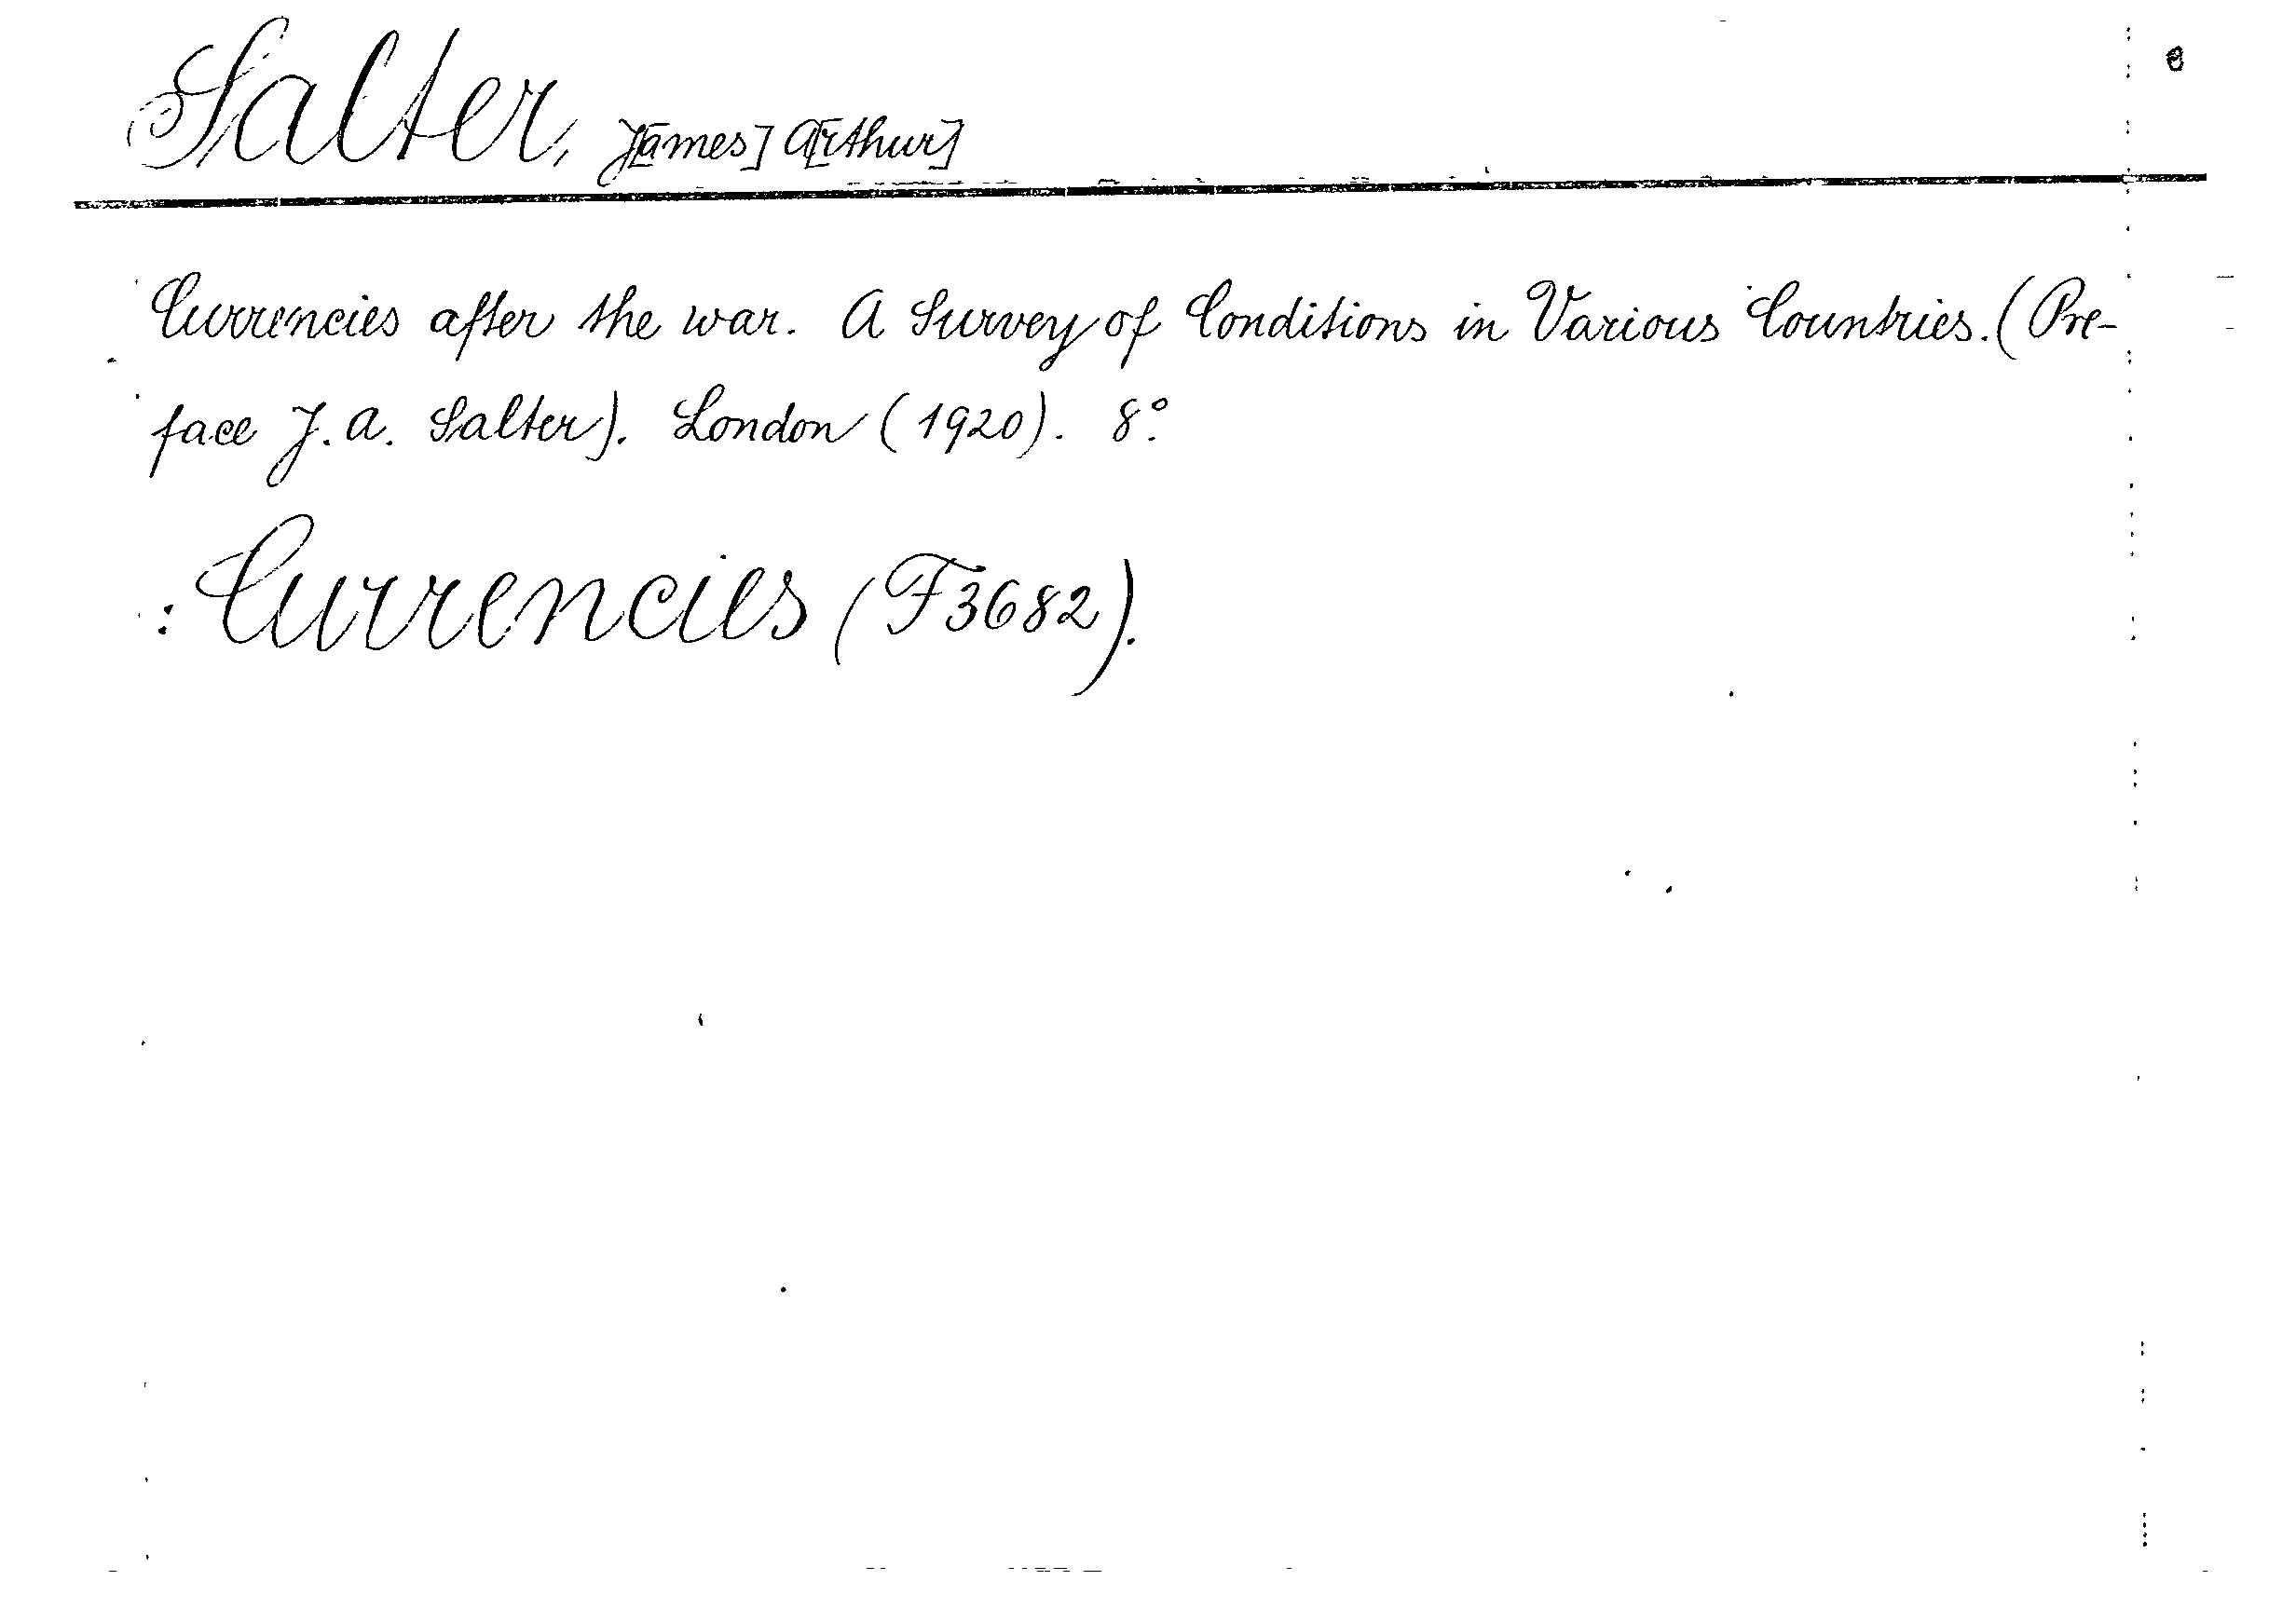 Salter, J[ames] A[rthur]
e
Currencies after the war. A Survey of Conditions in Various Countries. (Pre-
face J. A. Salter). London (1920). 8°.
: Currencies (F3682).